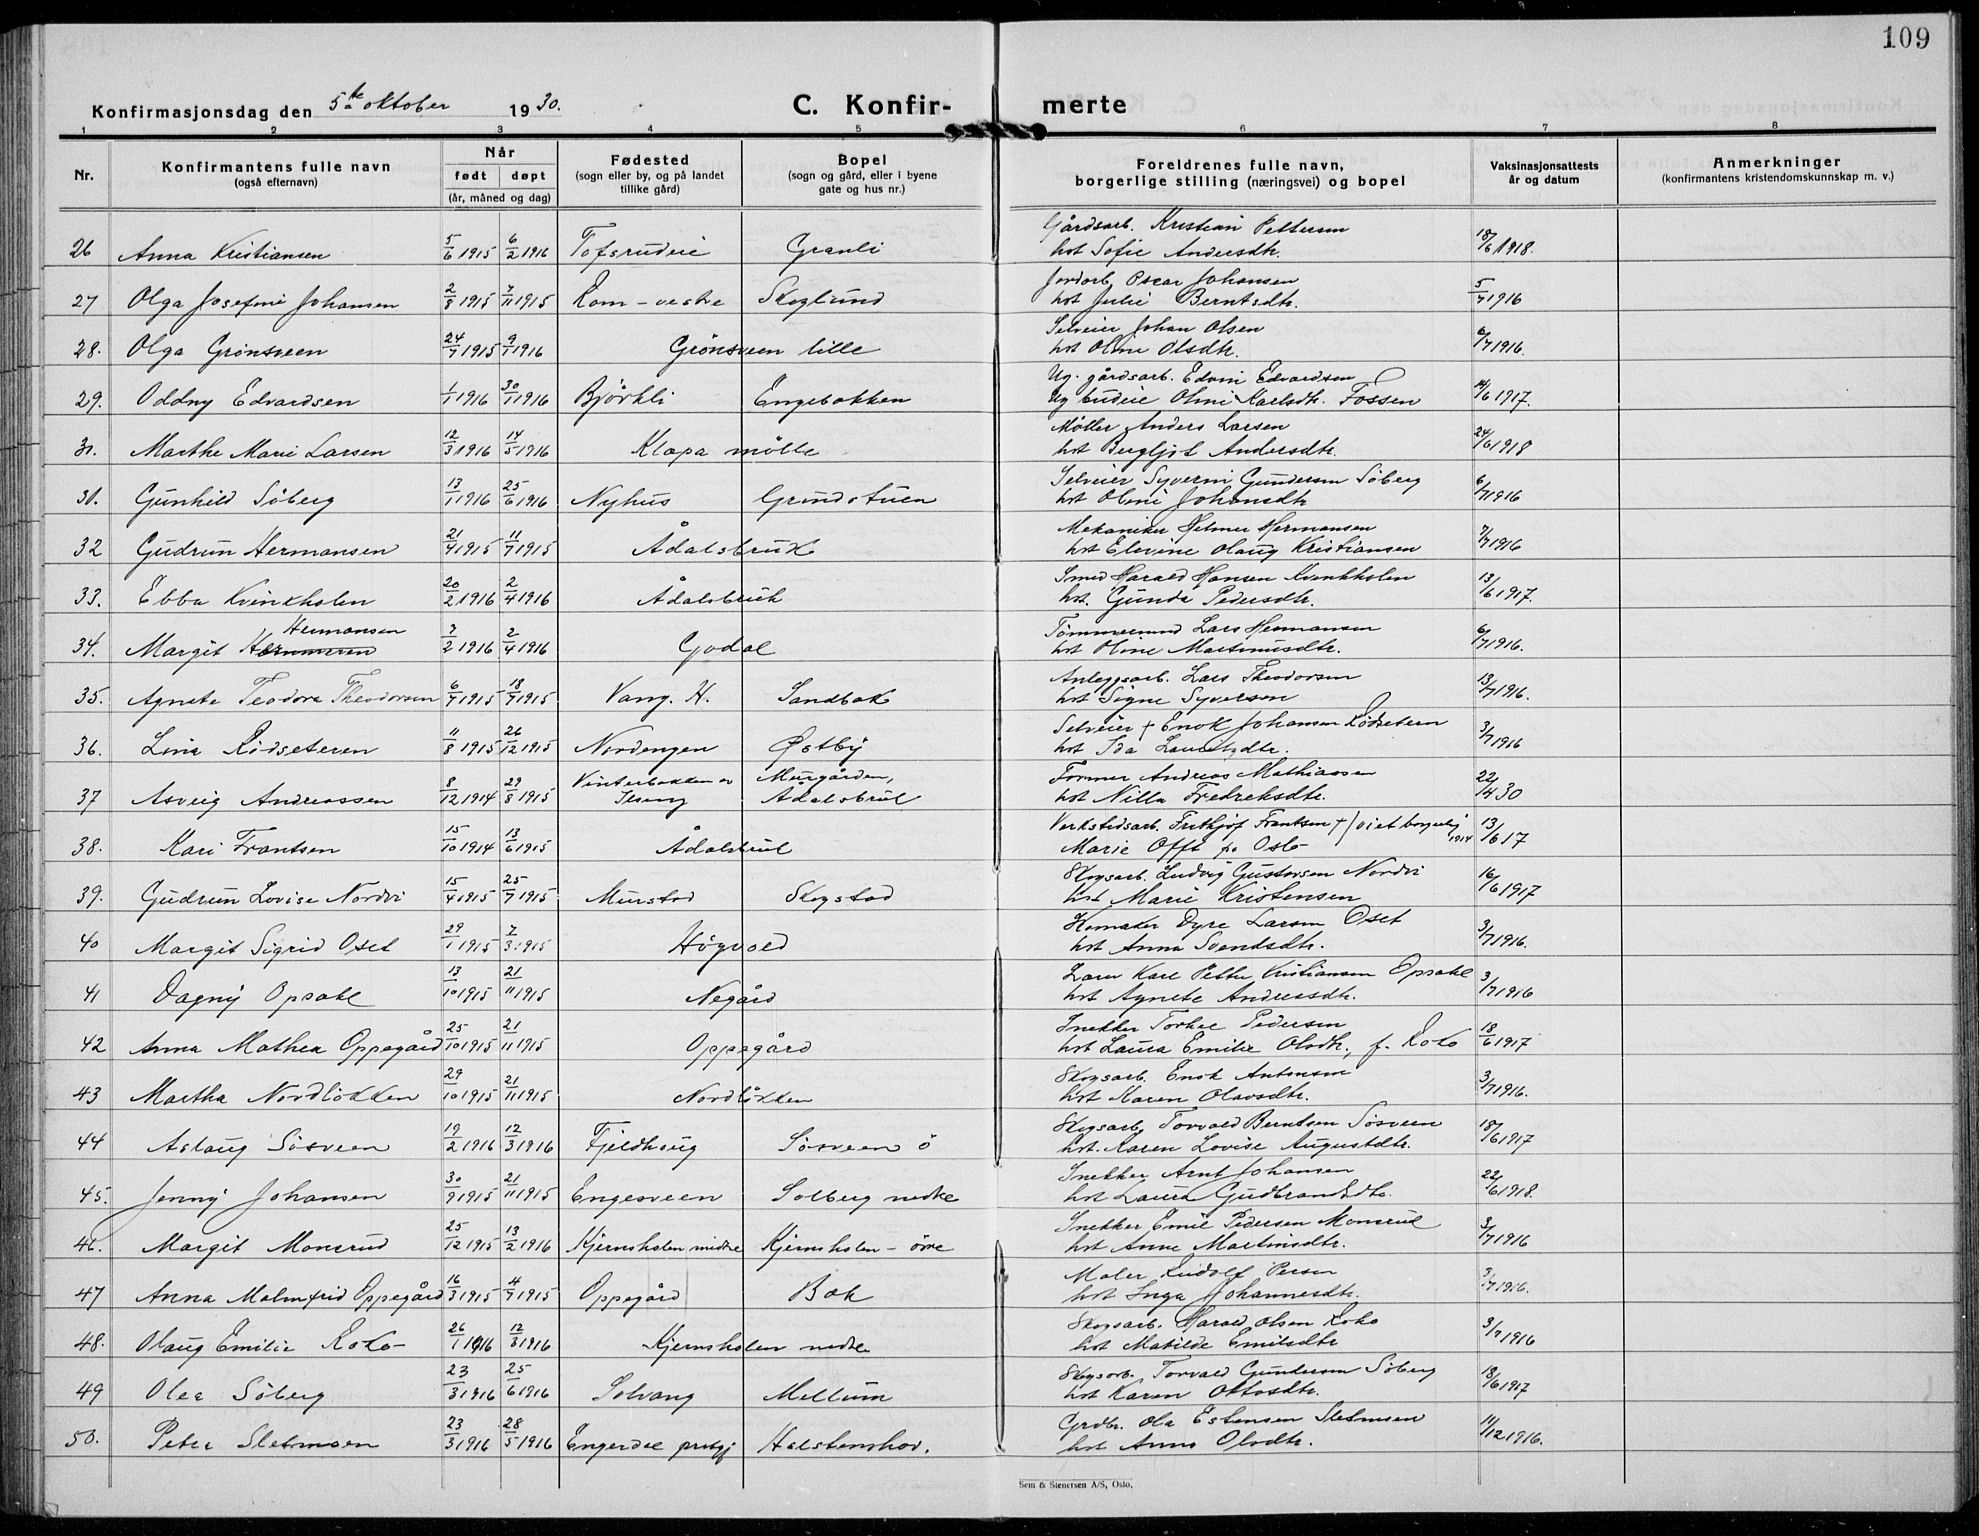 109
Konfirmasjonsdag den 5te oktober 1930.
C. Konfir- merte
1 2 3 4 5 6 7 8
Nr.
Konfirmantens fulle navn
(også efternavn)
Når
født døpt
(år, måned og dag)
Fødested
(sogn eller by, og på landet
tillike gård)
Bopel
(sogn og gård, eller i byene
gate og hus nr.)
Foreldrenes fulle navn,
borgerlige stilling (næringsvei) og bopel
Vaksinasjonsattests
år og datum
Anmerkninger
(konfirmantens kristendomskunnskap m. v.)
26 Anna Kristiansen 5/6 1915 6/2 1916 Tofsrudeie Granli Gårdsarb. Kristian Pettersen 18/6 1918.
hst Sofie Andersdtr.
27 Olga Josefine Johansen 2/8 1915 7/11 1915 Rom-vestre Skoglund Jordarb. Oscar Johansen 5/7 1916
hst Julie Berntsdtr.
28. Olga Grönsveen 24/7 1915 9/1 1916 Grönsveen lille Selveier Johan Olsen 6/7 1916.
hst Oline Olsdtr.
29. Oddny Edvardsen 1/1 1916 30/1 1916 Björkli Engebakken Ug. gårdsarb. Edvin Edvardsen 14/6 1917.
ug budeie Oline Karlsdtr. Fossen
30. Marthe Marie Larsen 12/3 1916 14/5 1916 Klapa mölle Møller Anders Larsen 24/6 1918
hst Bergljot Andersdtr.
31. Gunhild Söberg 13/1 1916 25/6 1916 Nyhus Grundstuen Selveier Syverin Gundersen Söberg 6/7 1916
hst Oline Johansdtr
32 Gudrun Hermansen 21/4 1915 11/7 1915 Ådalsbruk Mekaniker Helmer Hermansen 7/7 1916
hst Elevine Olaug Kristiansen
33. Ebba Kvinkholen 20/2 1916 2/4 1916 Ådalsbruk Smed Harald Hansen Kvinkholen 13/6 1917.
hst. Gunda Pedersdtr.
Hermansen
34. Margit 7/2 1916 2/4 1916 Godal Tömmermand Lars Hermansen 6/7 1916.
hst Oline Martinusdtr.
35. Agnete Teodora Theodorsen 6/7 1915 18/7 1915 Vang. H. Sandbak Anleggsarb. Lars Theodorsen 13/7 1916.
hst Signe Syversen
36. Lina Rödseteren 11/8 1915 26/12 1915 Nordengen Østby Selveier + Enok Johansen Rödseteren 3/7 1916
hst Ida Lauritsdtr.
37 Asveig Andreassen 8/12 1914 29/8 1915 Vinterbakken av Murgården, Former Andreas Mathiassen 22/4 30
Ilseng Ådalsbruk hst Nilla Fredreksdtr.
38. Kari Frantsen 15/10 1914 13/6 1915 Ådalsbruk Verkstedsarb. Frithjof Frantsen + / viet borgerlig 1914 13/6 17
Marie Offt på Oslo
39. Gudrun Lovise Nordvi 15/4 1915 25/7 1915 Murstad Skogstad Skogsarb. Ludvig Gustavsen Nordvi 16/6 1917
hst Marie Kristensen
40 Margit Sigrid Oset 29/1 1915 7/3 1915 Högvold Dyre Larsen Oset 3/7 1916.
hst Anna Svendsdtr.
41 Dagny Opsahl 13/10 1915 21/11 1915 Negård Karl Petter Kristiansen Opsahl 3/7 1916
hst Agnete Andreasdtr.
42 Anna Mathea Oppegård 25/10 1915 21/11 1915 Oppegård Snekker Torkel Pedersen 18/6 1917
hst Laura Emilie Olsdtr., f. Roko
43 Martha Nordlökken 29/10 1915 21/11 1915 Nordlökken Skogsarb. Enok Antonsen 3/7 1916.
hst Karen Olavsdtr.
44 Aslaug Sösveen 19/2 1916 12/3 1916 Fjeldhaug Sösveen ö Skogsarb. Torvald Berntsen Sösveen 18/6 1917
hst. Karen Lovise Augustdtr.
45. Jenny Johansen 30/9 1915 21/11 1915 Engesveen Solberg nedre Snekker Arnt Johansen 22/6 1918.
hst Laura Gudbrandsdtr.
46. Margit Monsrud 25/12 1915 13/2 1916 Kjernsholen midtre Kjernsholen - övre Snekker Emil Pedersen Monsrud 3/7 1916
hst Anne Martinsdtr.
47 Anna Malmfrid Oppegård 16/3 1915 4/7 1915 Oppegård Bak Maler Rudolf Persen 3/7 1916.
hst Inga Johannesdtr.
48. Olaug Emilie Roko 26/1 1916 12/3 1916 Kjernsholen nedre Skogsarb. Harald Olsen Roko 3/7 1916
hst Matilde Emilsdtr
49 Olea Söberg 23/3 1916 25/6 1916 Solvang Mellum Skogsarb. Torvald Gundersen Söberg 18/6 1917
hst Karen Ottosdtr.
50. Petra Sletmoen 23/3 1916 28/5 1916 Engerdal prstgj Halstenshov. Grdbr. Ola Estensen Sletmoen 11/12 1916.
hst Anne Olsdtr.
Sem & Stenersen A/S, Oslo.